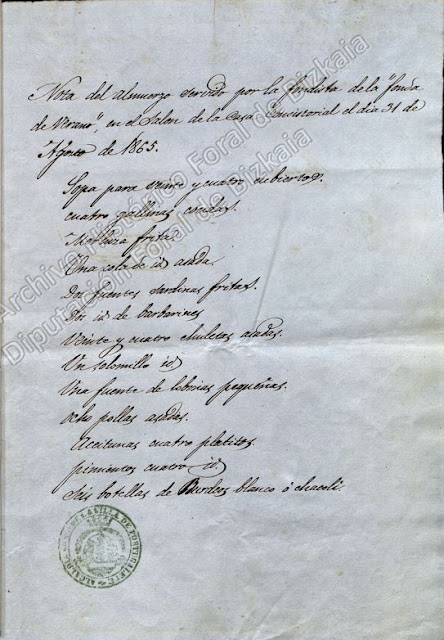 Nota del almuerzo servido por la fondista de la "fonda
de Verano", en el Salon de la Casa Consistorial el dia 31 de
Agosto de 1865.
Sopa para veinte y cuatro cubiertos.
cuatro gallinas cocidas.
Merluza frita.
Una cola de id asada.
Dos fuentes sardinas fritas.
Un id de barbarines
Veinte y cuatro chuletas asadas.
Un solomillo id
Una fuente de pequeñas.
ocho pollas asadas.
Aceitunas cuatro platitos
pimientos cuatro id
Seis botellas de Burdeos blanco ó chacolí.
Archivo Histórico Foral de Bizkaia
Diputación Foral de Bizkaia
DE LA VILLA DE PORTUGALETE